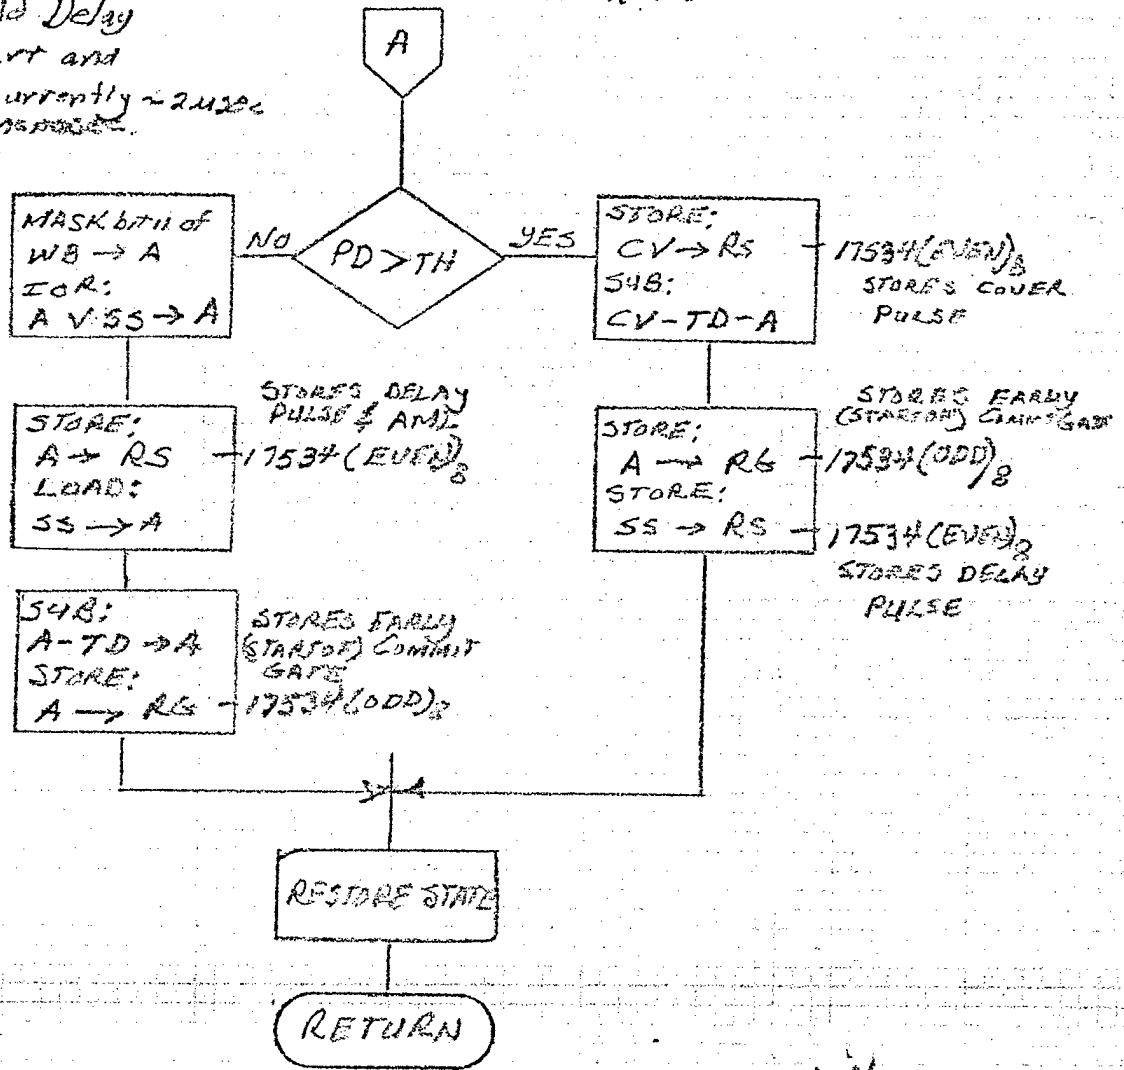 Delay
and
A
MASK bit 11 of
WB → A
IOR:
A V SS → A
NO
PD > TH
YES
STORE:
CV → RS
SUB:
CV - TD - A
17534 (EVEN)8
STORES COVER
PULSE
STORE:
A → RS
LOAD:
SS → A
STORES DELAY
PULSE & AML
17534 (EVEN)8
STORE:
A → RG
STORE:
SS → RS
STORES EARLY
(START OF) COMMIT GATE
17534 (ODD)8
17534 (EVEN)8
STORES DELAY
PULSE
SUB:
A - TD → A
STORE:
A → RG
STORES EARLY
(START OF) COMMIT
GATE
17534 (ODD)8
RESTORE STATE
RETURN